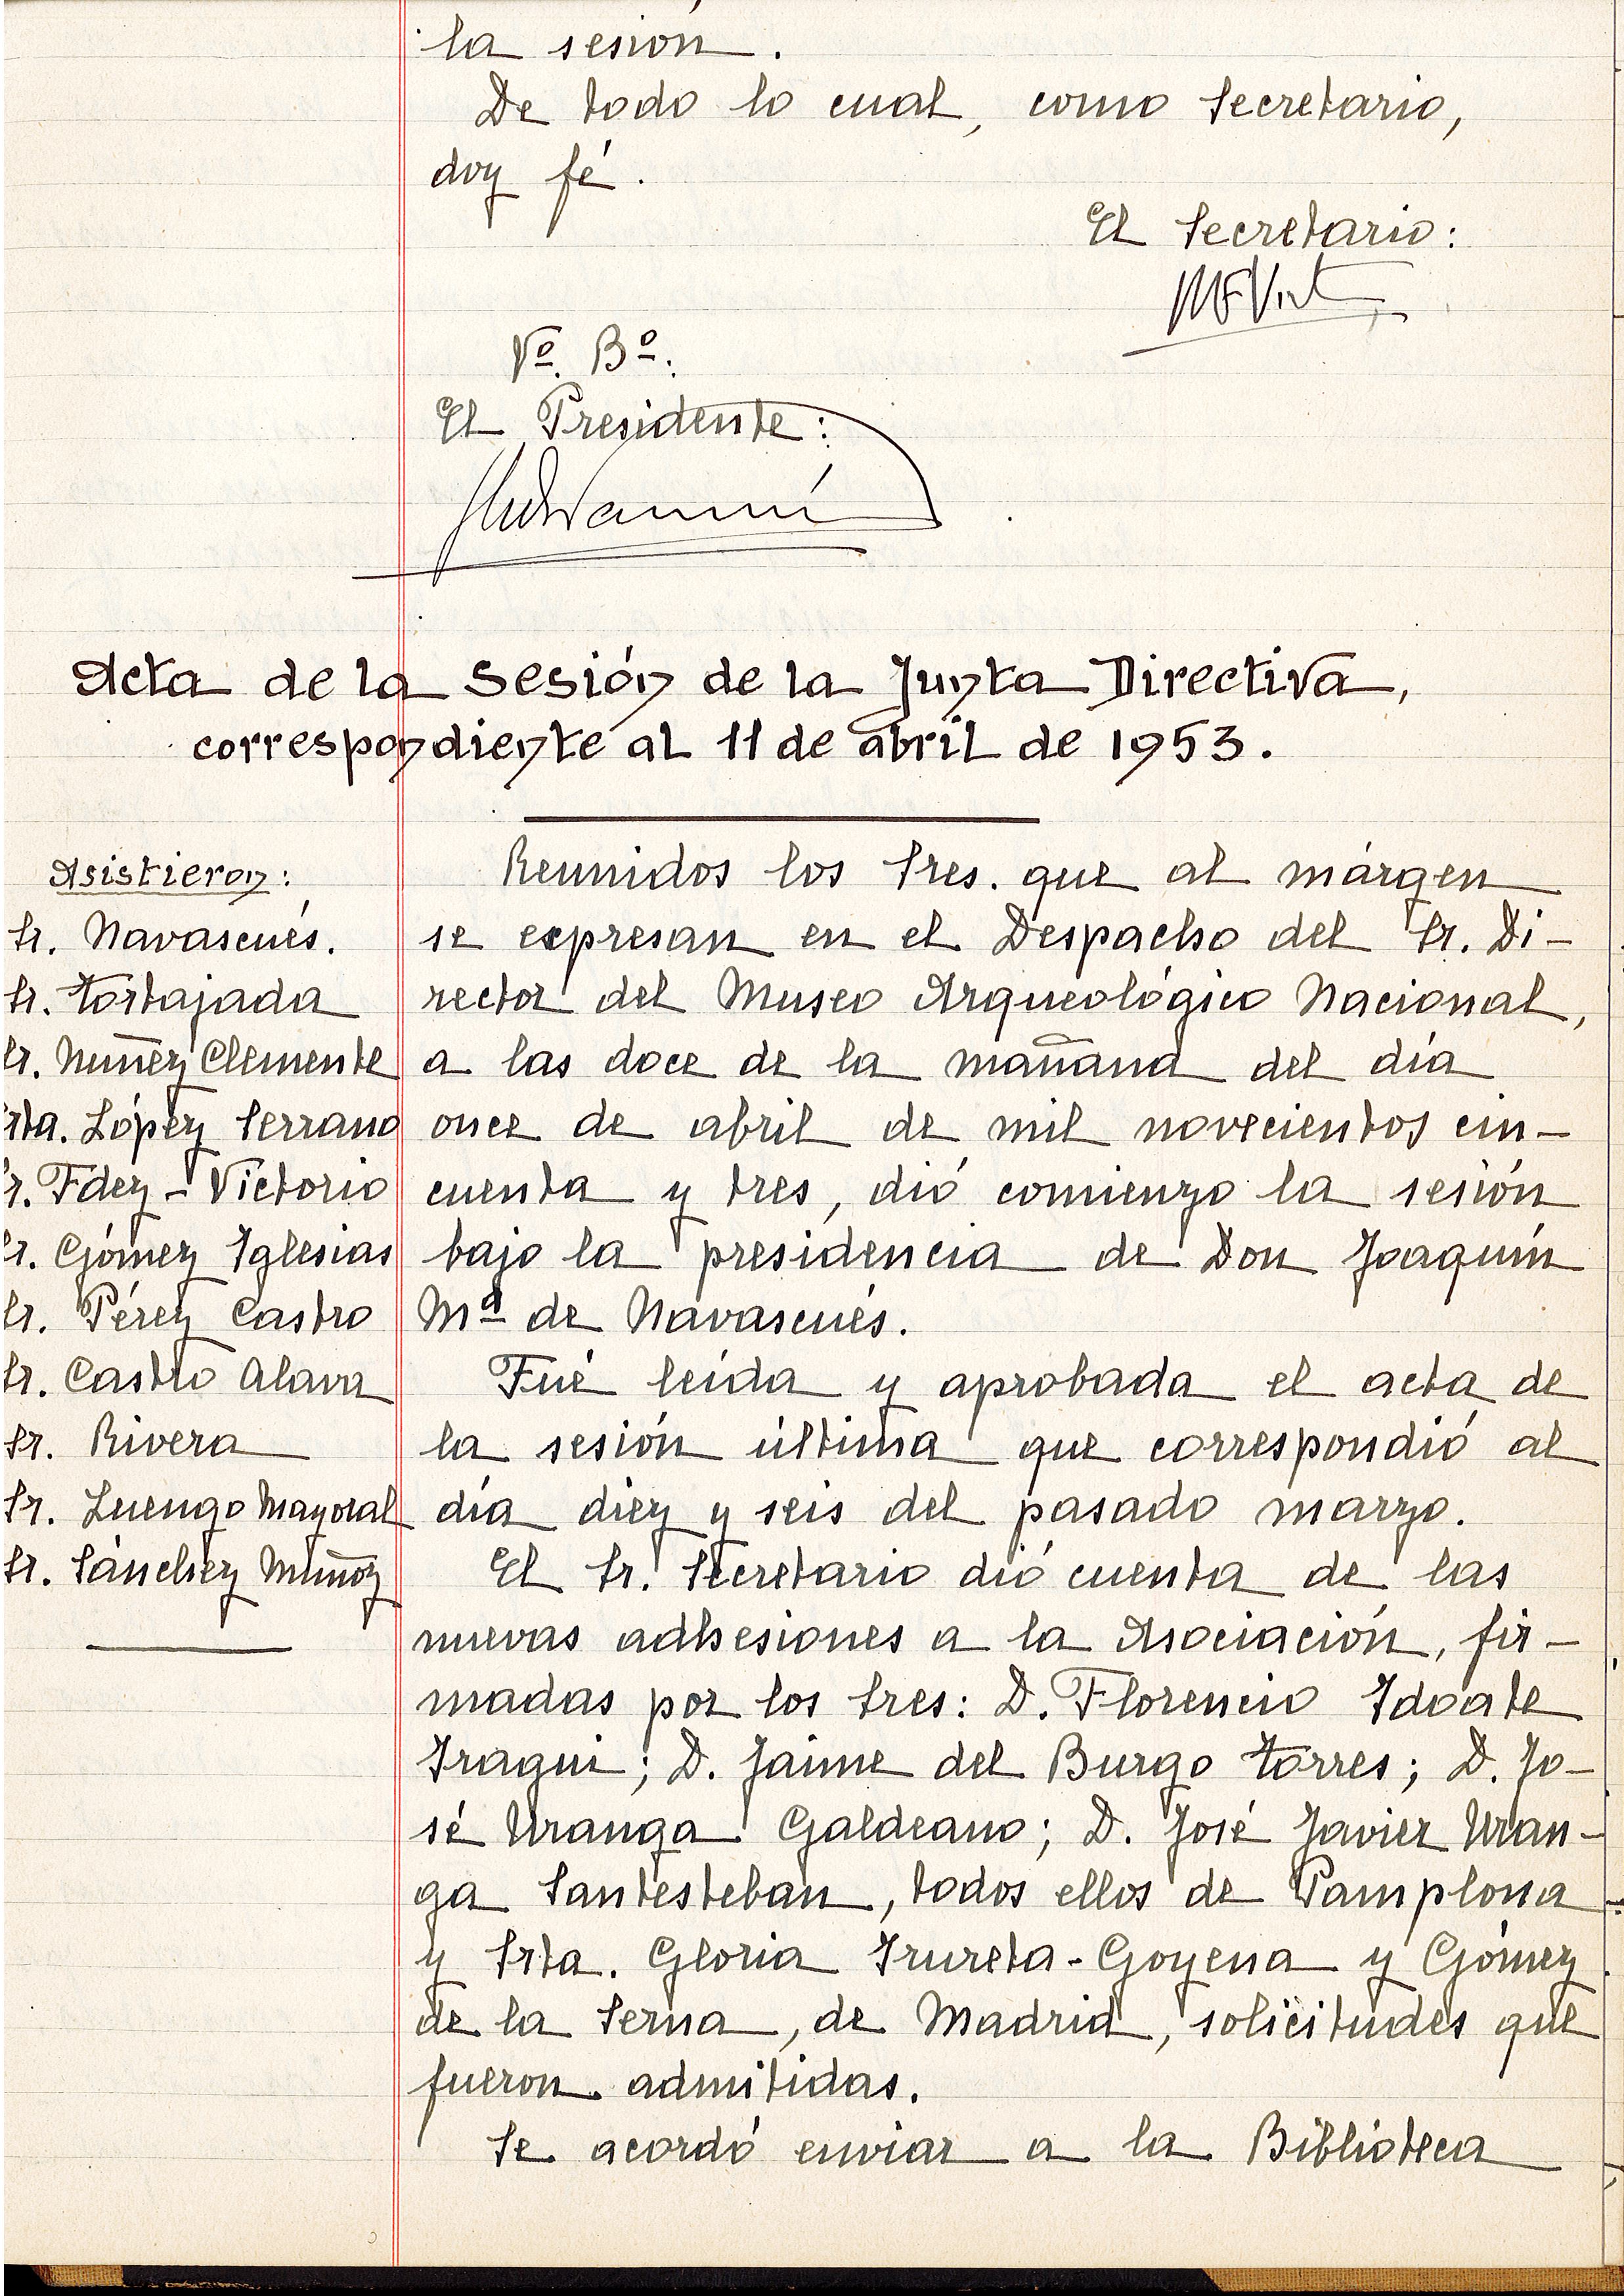 la sesión.
De todo lo cual, como Secretario,
doy fé.
El Secretario:
Vº. Bº.:
El Presidente:
Acta de la Sesión de la Junta Directiva,
correspondiente al 11 de abril de 1953.
Asistieron:
Sr. Navascués.
Sr. Tortajada
Sr. Nuñez Clemente
Srta. López Serrano
Sr. Fdez-Victorio
Sr. Gómez Iglesias
Sr. Pérez Castro
Sr. Castro Alava
Sr. Rivera
Sr. Luengo Mayoral
Sr. Sánchez Muñoz
Reunidos los Sres. que al márgen
se expresan en el Despacho del Sr. Di-
rector del Museo Arqueológico Nacional,
a las doce de la mañana del día
once de abril de mil novecientos cin-
cuenta y tres, dió comienzo la sesión
bajo la presidencia de Don Joaquín
Mª de Navascués.
Fué leída y aprobada el acta de
la sesión última que correspondió al
día diez y seis del pasado marzo.
El Sr. Secretario dió cuenta de las
nuevas adhesiones a la Asociación, fir-
madas por los Sres: D. Florencio Idoate
Iragui; D. Jaime del Burgo Torres; D. Jo-
sé Uranga Galdeano; D. José Javier Uran-
ga Santesteban, todos ellos de Pamplona
y Srta. Gloria Irureta-Goyena y Gómez
de la Serna, de Madrid, solicitudes que
fueron admitidas.
Se acordó enviar a la Biblioteca